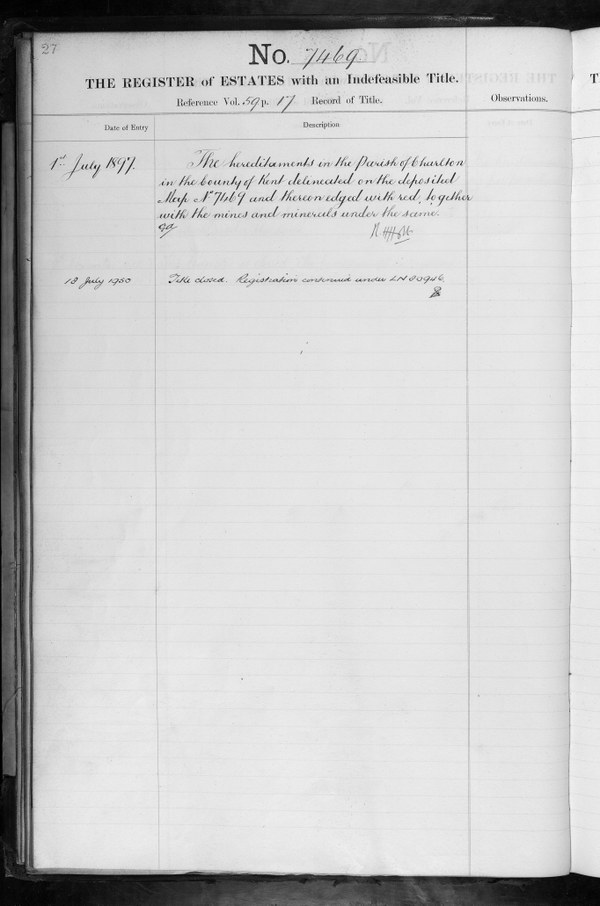 27
No. 7469
THE REGISTER of ESTATES with an Indefeasible Title.
Reference Vol. 59 p. 17 Record of Title.
Observations.
Date of Entry
Description
1st July 1897.
The hereditaments in the Parish of Charlton
in the County of Kent delineated on the deposited
Map No 7469 and thereon edged with red, together
with the mines and minerals under the same.
13 July 1950
Title closed. Registration continued under LN 80946
T